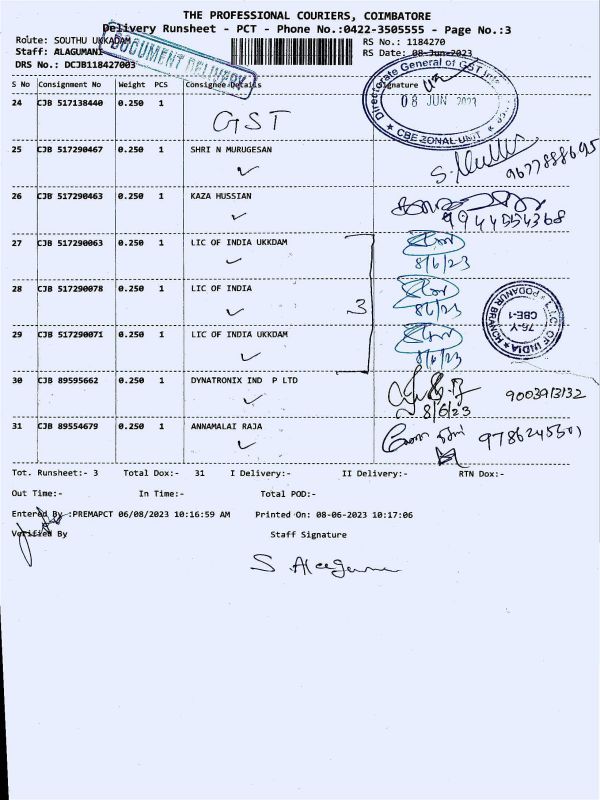 THE PROFESSIONAL COURIERS, COIMBATORE
Delivery Runsheet - PCT - Phone No.:0422-3505555 - Page No.:3
Route: SOUTHU UKKADAM
RS No.: 1184270
Staff: ALAGUMANI
RS Date: 08-Jun-2023
DRS No.: DCJB118427003
DOCUMENT DELIVERY
S No Consignment No Weight PCS Consignee Details Signature
Directorate General of GST
08 JUN 2023
CBE ZONAL UNIT
24 CJB 517138440 0.250 1 GST
25 CJB 517290467 0.250 1 SHRI N MURUGESAN
9677888695
26 CJB 517290463 0.250 1 KAZA HUSSIAN
9944554368
27 CJB 517290063 0.250 1 LIC OF INDIA UKKDAM
8/6/23
28 CJB 517290078 0.250 1 LIC OF INDIA
3
8/6/23
29 CJB 517290071 0.250 1 LIC OF INDIA UKKDAM
8/6/23
L.I.C. OF INDIA
PODANUR BRANCH
76-Y
CBE-1
30 CJB 89595662 0.250 1 DYNATRONIX IND P LTD
8/6/23
9003913132
31 CJB 89554679 0.250 1 ANNAMALAI RAJA
9786245501
Tot. Runsheet:- 3 Total Dox:- 31 I Delivery:- II Delivery:- RTN Dox:-
Out Time:- In Time:- Total POD:-
Entered By :PREMAPCT 06/08/2023 10:16:59 AM Printed On: 08-06-2023 10:17:06
Verified By Staff Signature